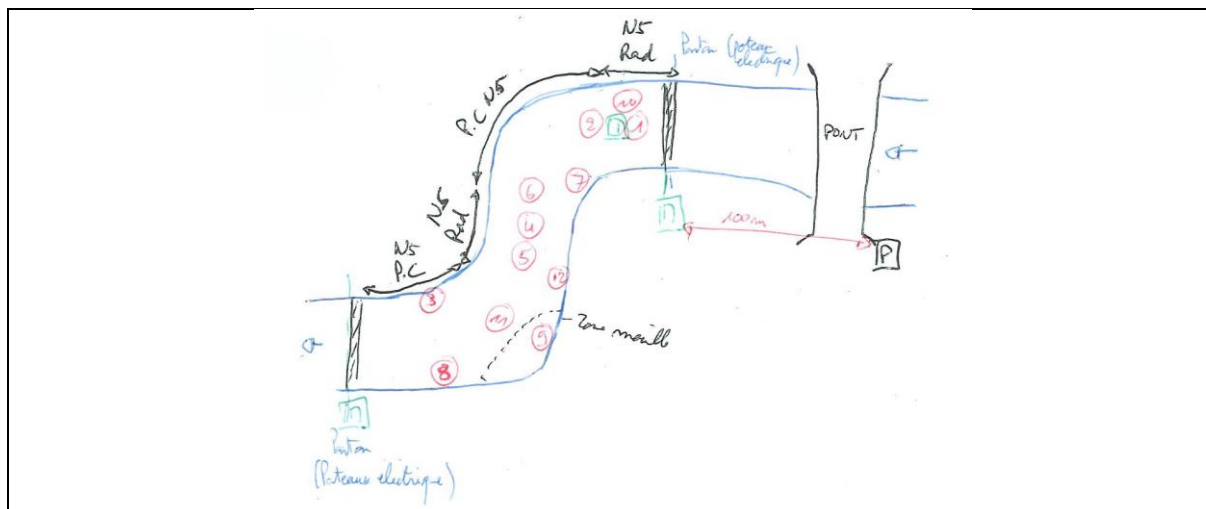 N5
Rad
Ponton (poteau
électrique)
P.C N5
10
2
1
PONT
6
7
N5
Rad
4
100m
5
P
N5
P.C
12
3
11
9
Zone mouille
8
Ponton
(Poteaux électrique)